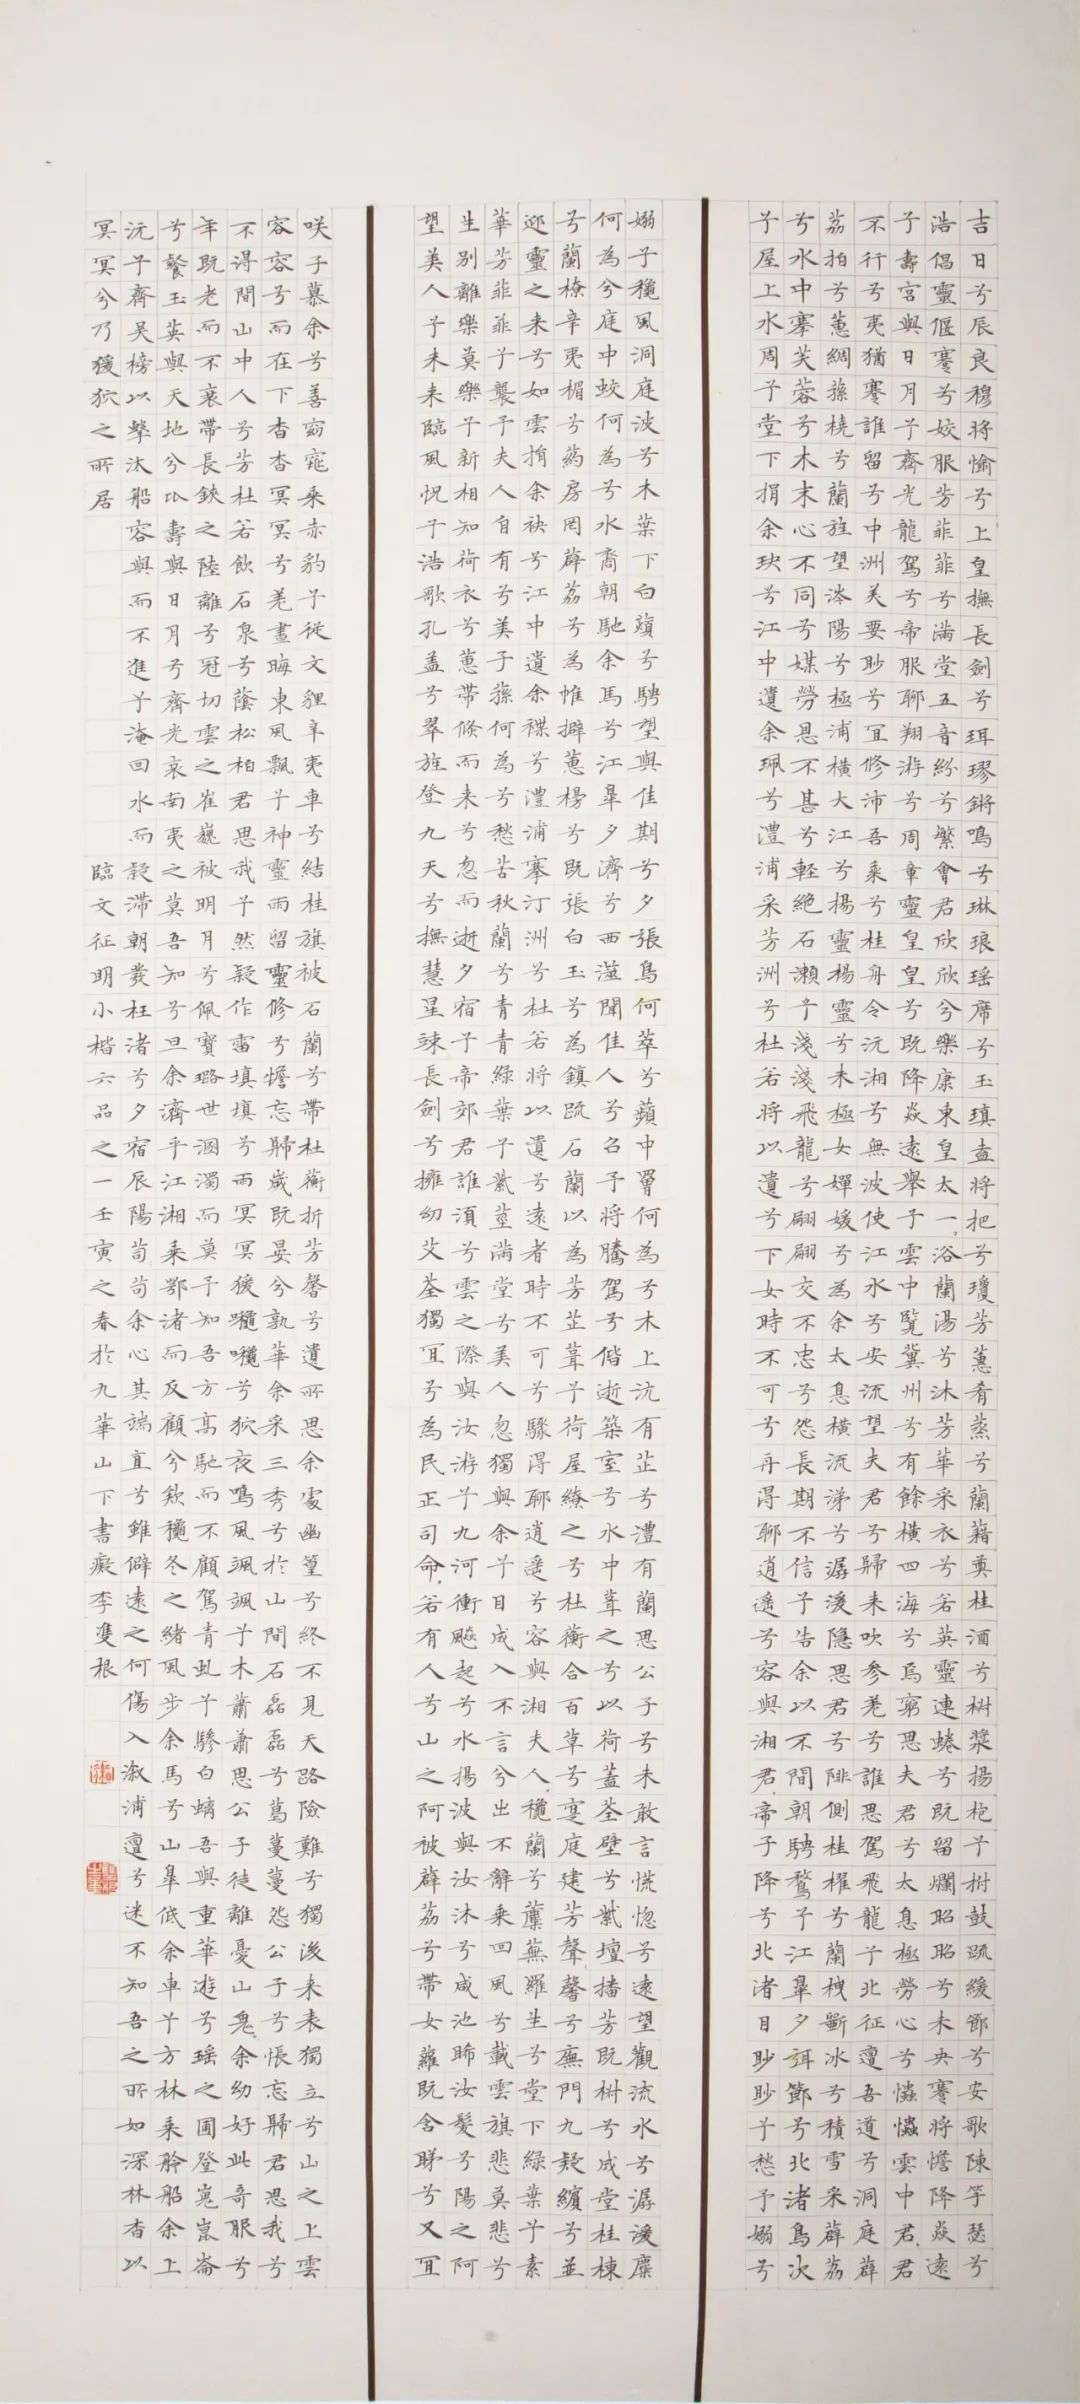 吉日兮辰良穆將愉兮上皇撫長劍兮珥璆鏘鳴兮琳琅瑤席兮玉瑱盍將把兮瓊芳蕙肴蒸兮蘭藉奠桂酒兮椒漿揚枹兮拊鼓疏緩節兮安歌陳竽瑟兮
浩倡靈偃蹇兮姣服芳菲菲兮滿堂五音紛兮繁會君欣欣兮樂康東皇太一浴蘭湯兮沐芳華采衣兮若英靈連蜷兮既留爛昭昭兮未央蹇將憺降焱遠
子壽宮與日月兮齊光龍駕兮帝服聊翔游兮周章靈皇皇兮既降焱遠舉子雲中覽冀州兮有餘橫四海兮焉窮思夫君兮太息極勞心兮𢥞𢥞雲中君君
不行兮夷猶蹇誰留兮中洲美要眇兮宜修沛吾乘兮桂舟令沅湘兮無波使江水兮安流望夫君兮歸來吹參差兮誰思駕飛龍子北征邅吾道兮洞庭薜
荔拍兮蕙綢蓀橈兮蘭旌望涔陽兮極浦橫大江兮揚靈楊靈兮未極女嬋媛兮為余太息橫流涕兮潺湲隱思君兮陫側桂櫂兮蘭枻斲冰兮積雪采薜荔
兮水中搴芙蓉兮木末心不同兮媒勞恩不甚兮輕絕石瀨兮淺淺飛龍兮翩翩交不忠兮怨長期不信子告余以不間朝騁騖子江皋夕弭節兮北渚鳥次
兮屋上水周子堂下捐余玦兮江中遺余珮兮澧浦采芳洲兮杜若將以遺兮下女時不可兮再得聊逍遙兮容與湘君帝子降兮北渚目眇眇兮愁予嫋兮
嫋子穐風洞庭波兮木葉下白薠兮騁望與佳期兮夕張鳥何萃兮蘋中罾何為兮木上沅有芷兮澧有蘭思公子兮未敢言慌惚兮遠望觀流水兮潺湲麋
何為兮庭中蛟何為兮水裔朝馳余馬兮江皋夕濟兮西澨聞佳人兮召予將騰駕兮偕逝築室兮水中葺之兮以荷蓋荃壁兮紫壇播芳既椒兮成堂桂棟
兮蘭橑辛夷楣兮葯房罔薜荔兮為帷擗蕙楊兮既張白玉兮為鎮疏石蘭以為芳芷葺子荷屋繚之兮杜蘅合百草兮寔庭建芳聲馨兮廡門九疑繽兮並
迎靈之來兮如雲捐余袂兮江中遺余褋兮澧浦搴汀洲兮杜若將以遺兮遠者時不可兮驟得聊逍遙兮容與湘夫人穐蘭兮蘪蕪羅生兮堂下綠葉兮素
華芳菲菲子襲予夫人自有兮美子蓀何為兮愁苦秋蘭兮青青綠葉子紫莖滿堂兮美人忽獨與余兮目成入不言兮出不辭乘回風兮載雲旗悲莫悲兮
生別離樂莫樂子新相知荷衣兮蕙帶倏而來兮忽而逝夕宿子帝郊君誰須兮雲之際與汝游兮九河衝飈起兮水揚波與汝沐兮咸池晞汝髮兮陽之阿
望美人子未來臨風怳子浩歌孔蓋兮翠旌登九天兮撫慧星竦長劍兮擁幼艾荃獨宜兮為民正司命若有人兮山之阿被薜荔兮帶女蘿既含睇兮又宜
咲子慕余兮善窈窕乘赤豹子從文貍辛夷車兮結桂旗被石蘭兮帶杜蘅折芳馨兮遺所思余處幽篁兮終不見天路險難兮獨後來表獨立兮山之上雲
容容兮而在下杳杳冥冥兮羌晝晦東風飄子神靈雨留靈修兮憺忘歸歲既晏兮孰華余采三秀兮於山間石磊磊兮葛蔓蔓怨公子兮悵忘歸君思我兮
不得間山中人兮芳杜若飲石泉兮蔭松柏君思我子然疑作雷填填兮雨冥冥猨兮狖夜鳴風颯颯子木蕭蕭思公子徒離憂山鬼余幼好此奇服兮
年既老而不衰帶長鋏之陸離兮冠切雲之崔巍被明月兮佩寶璐世溷濁而莫子知吾方高馳而不顧駕青虬兮驂白螭吾與重華遊兮瑤之圃登崑崙
兮餐玉英與天地兮比壽與日月兮齊光哀南夷之莫吾知兮旦余濟乎江湘乘鄂渚而反顧兮欸穐冬之緒風步余馬兮山皋低余車兮方林乘舲船余上
沅子齊吳榜以擊汰船容與而不進兮淹回水而疑滯朝發枉渚兮夕宿辰陽苟余心其端直兮雖僻遠之何傷入漵浦邅兮迷不知吾之所如深林杳以
冥冥兮乃猨狖之所居
臨文征明小楷六品之一壬寅之春於九華山下書癡李雙根